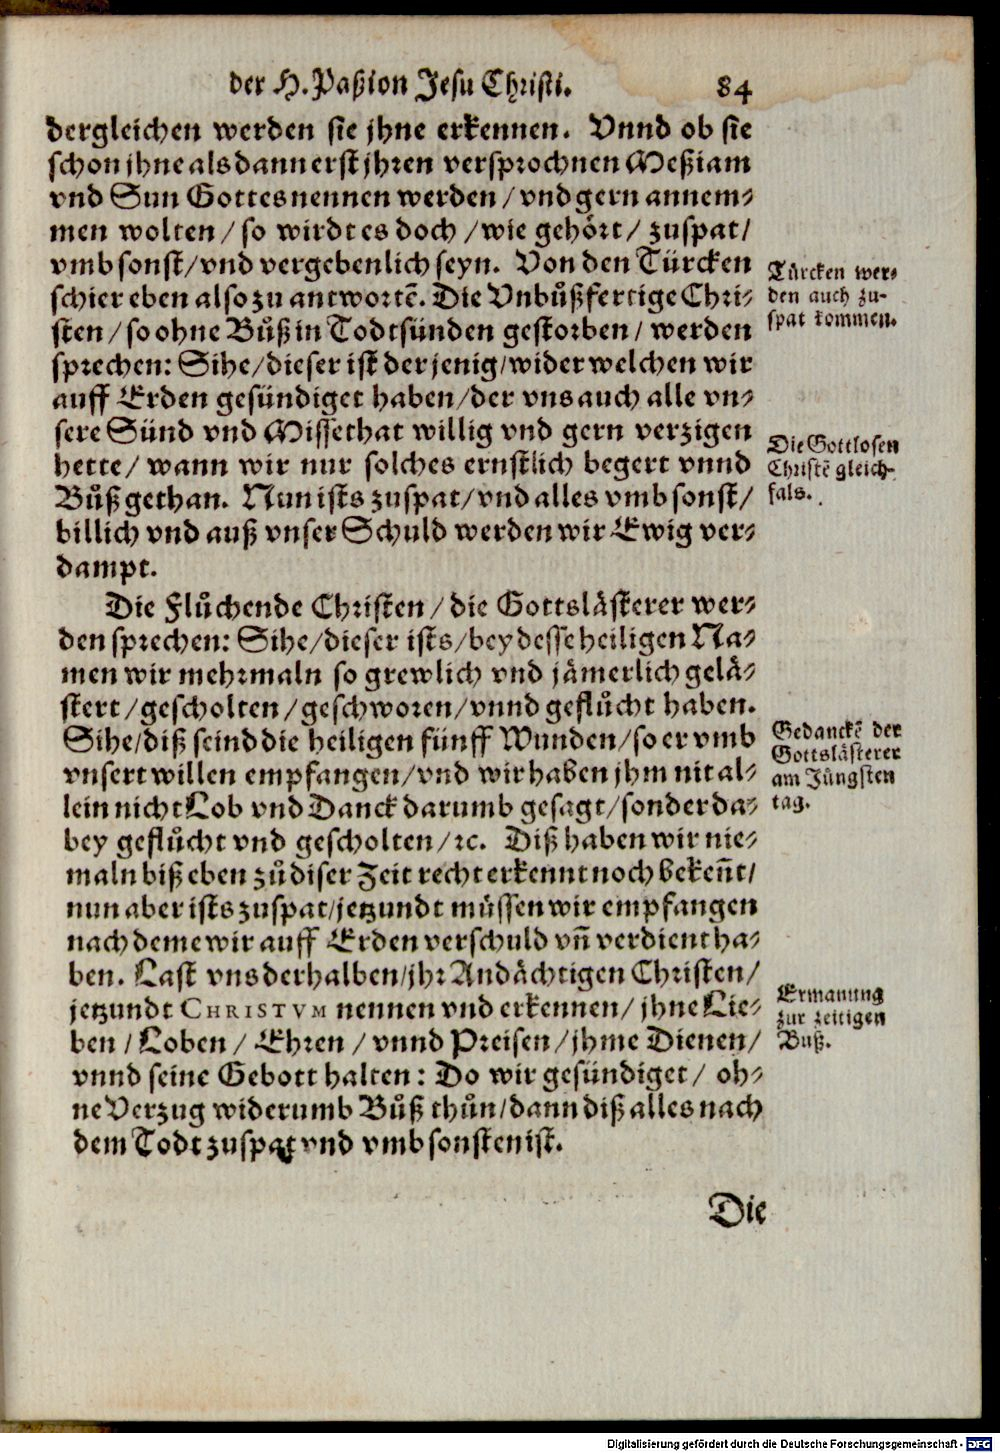 der H. Paßion Jesu Christi. 84
dergleichen werden sie jhne erkennen. Vnnd ob sie
schon jhne alsdann erst jhren versprochnen Meßiam
vnd Sun Gottes nennen werden / vnd gern annem⸗
men wolten / so wirdt es doch / wie gehört / zuspat /
vmb sonst / vnd vergebenlich seyn. Von den Türcken
schier eben also zu antwortē. Die Vnbůßfertige Chri⸗
sten / so ohne Bůß in Todtsünden gestorben / werden
sprechen: Sihe / dieser ist der jenig / wider welchen wir
auff Erden gesündiget haben / der vns auch alle vn⸗
sere Sünd vnd Missethat willig vnd gern verzigen
hette / wann wir nur solches ernstlich begert vnnd
Bůß gethan. Nun ists zuspat / vnd alles vmb sonst /
billich vnd auß vnser Schuld werden wir Ewig ver⸗
dampt.
Türcken wer⸗
den auch zu⸗
spat kommen.
Die Gottlosen
Christē gleich⸗
fals.
Die Flůchende Christen / die Gottslästerer wer⸗
den sprechen: Sihe / dieser ists / bey desse heiligen Na⸗
men wir mehrmaln so grewlich vnd jämerlich gelä⸗
stert / gescholten / geschworen / vnnd geflůcht haben.
Sihe / diß seind die heiligen fünff Wunden / so er vmb
vnsert willen empfangen / vnd wir haben jhm nit al⸗
lein nicht Lob vnd Danck darumb gesagt / sonder da⸗
bey geflůcht vnd gescholten / ꝛc. Diß haben wir nie⸗
maln biß eben zů diser Zeit recht erkennt noch bekeñt /
nun aber ists zuspat / jetzundt müssen wir empfangen
nach deme wir auff Erden verschuld vñ verdient ha⸗
ben. Last vns derhalben / jhr Andächtigen Christen /
jetzundt CHRISTVM nennen vnd erkennen / jhne Lie⸗
ben / Loben / Ehren / vnnd Preisen / jhme Dienen /
vnnd seine Gebott halten: Do wir gesündiget / oh⸗
ne Verzug widerumb Bůß thůn / dann diß alles nach
dem Todt zuspat vnd vmb sonsten ist.
Gedanckē der
Gottslästerer
am Jüngsten
tag.
Ermanung
zur zeitigen
Buß.
Die
Digitalisierung gefördert durch die Deutsche Forschungsgemeinschaft - DFG